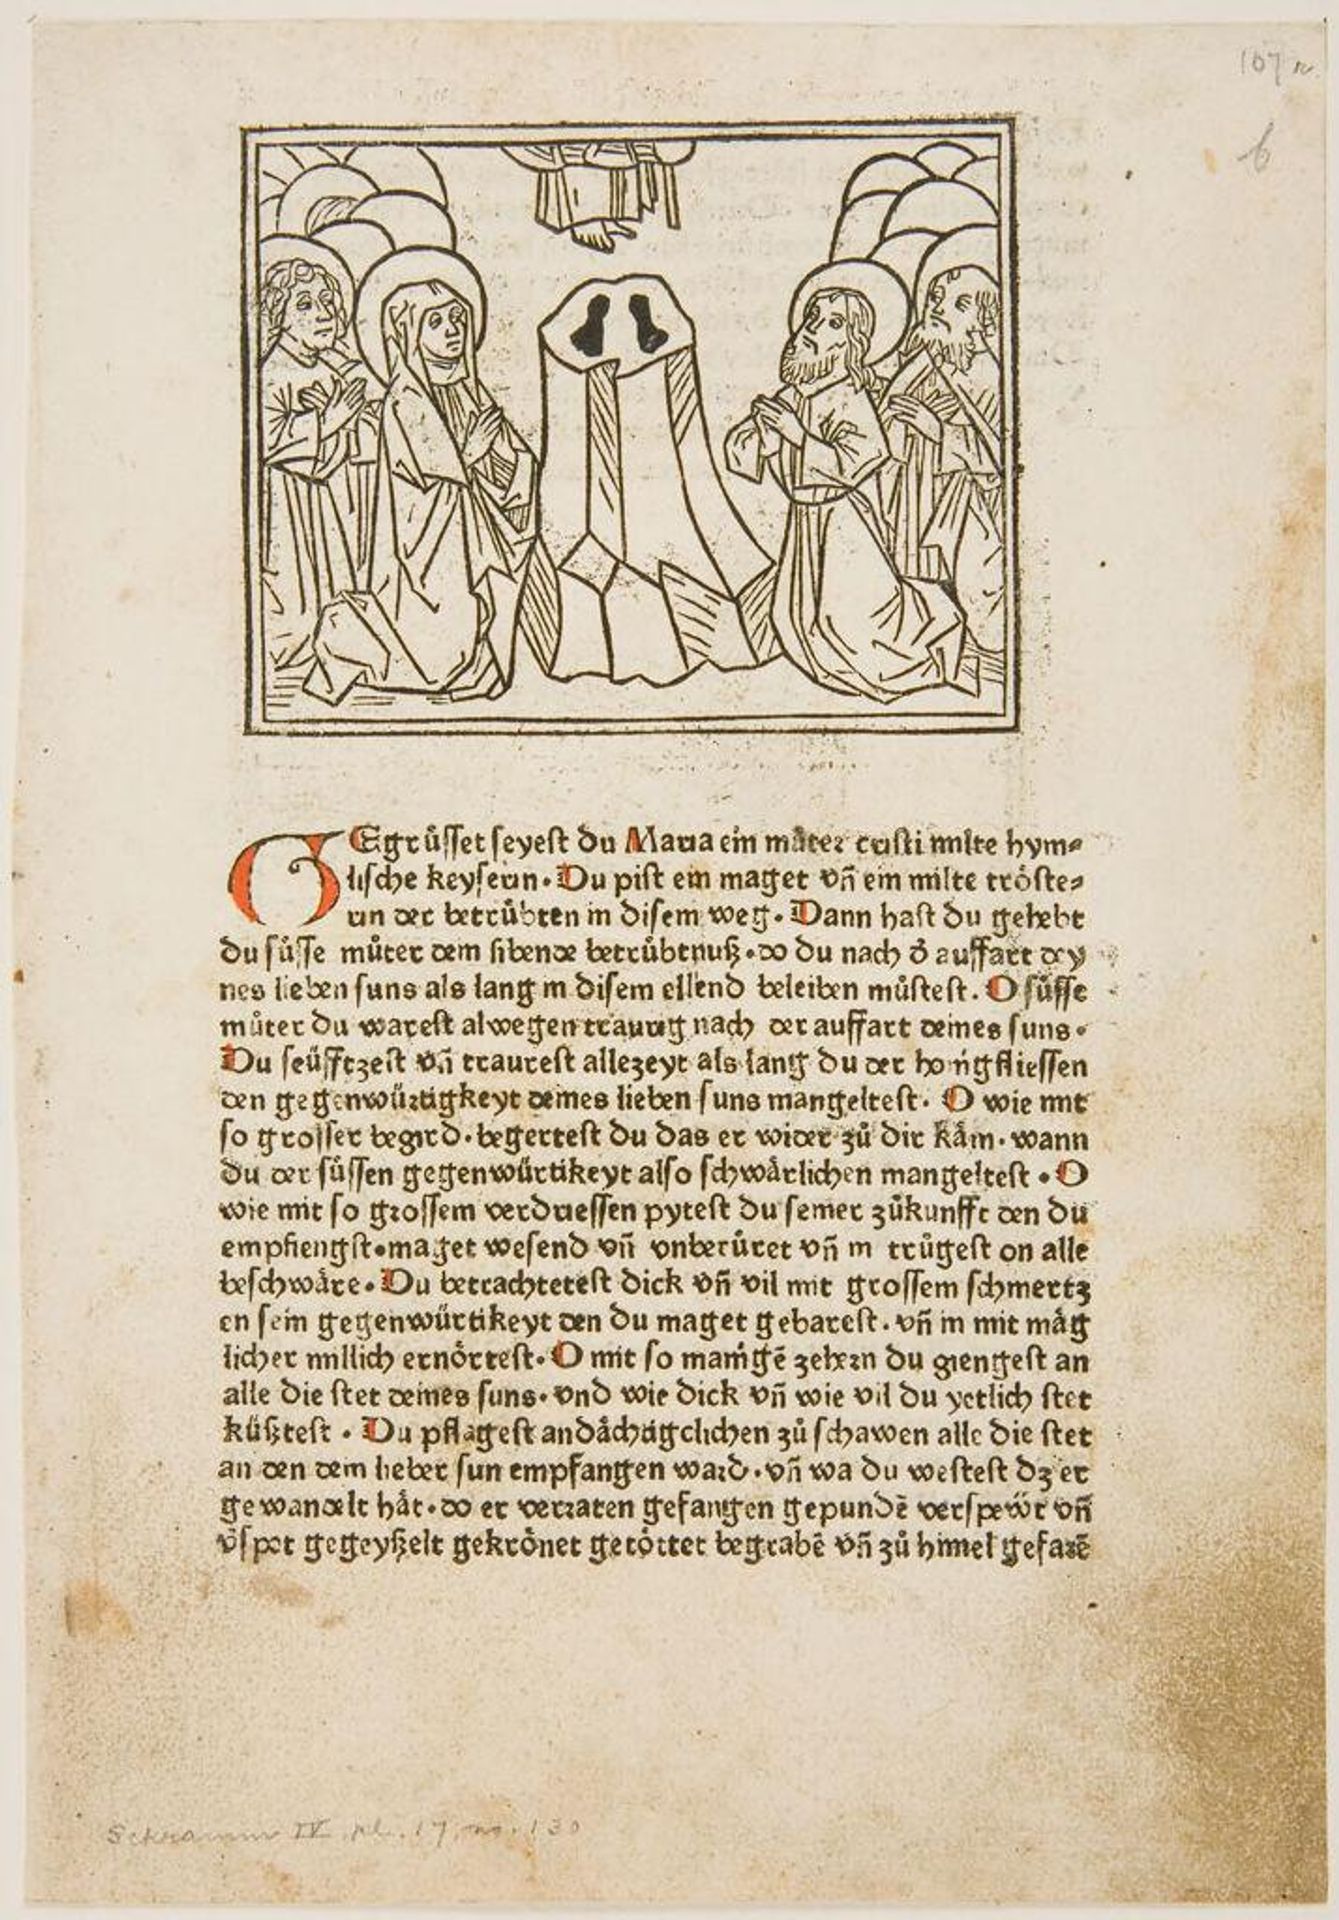 107 r
b
GEgrůſſet ſeyeſt du Maria ein můter criſti milte hym⸗
liſche keyſerin. Du piſt ein maget vñ ein milte tröſte⸗
rin der betrůbten in diſem weg. Dann haſt du gehebt
du ſůſſe můter dem ſibende betrůbtnuß. do du nach d̓ auffart dey
nes lieben ſuns als lang in diſem ellend beleiben můſteſt. O ſůſſe
můter du wareſt alwegen traurig nach der auffart deines ſuns.
Du ſeüfftzeſt vñ traureſt allezeyt als lang du der honigflieſſen
den gegenwürtigkeyt deines lieben ſuns mangelteſt. O wie mit
ſo groſſer begird. begerteſt du das er wider zů dir kåm. wann
du der ſůſſen gegenwürtikeyt alſo ſchwårlichen mangelteſt. O
wie mit ſo groſſem verdrieſſen pyteſt du ſeiner zůkunfft den du
empfiengſt. maget weſend vñ vnberůret vñ in trůgeſt on alle
beſchwåre. Du betrachteteſt dick vñ vil mit groſſem ſchmertz
en ſein gegenwürtikeyt den du maget gebareſt. vñ in mit måg
licher millich ernörteſt. O mit ſo manigē zehern du giengeſt an
alle die ſtet deines ſuns. vnd wie dick vñ wie vil du yetlich ſtet
küßteſt. Du pflageſt andåchtigclichen zů ſchawen alle die ſtet
an den dein lieber ſun empfangen ward. vñ wa du weſteſt dz er
gewandelt håt. do er verraten gefangen gepundē verſpeẅt vñ
v̓ſpot gegeyßelt gekrönet getöttet begrabē vñ zů himel gefarē
Schramm IV, pl. 17, no. 130